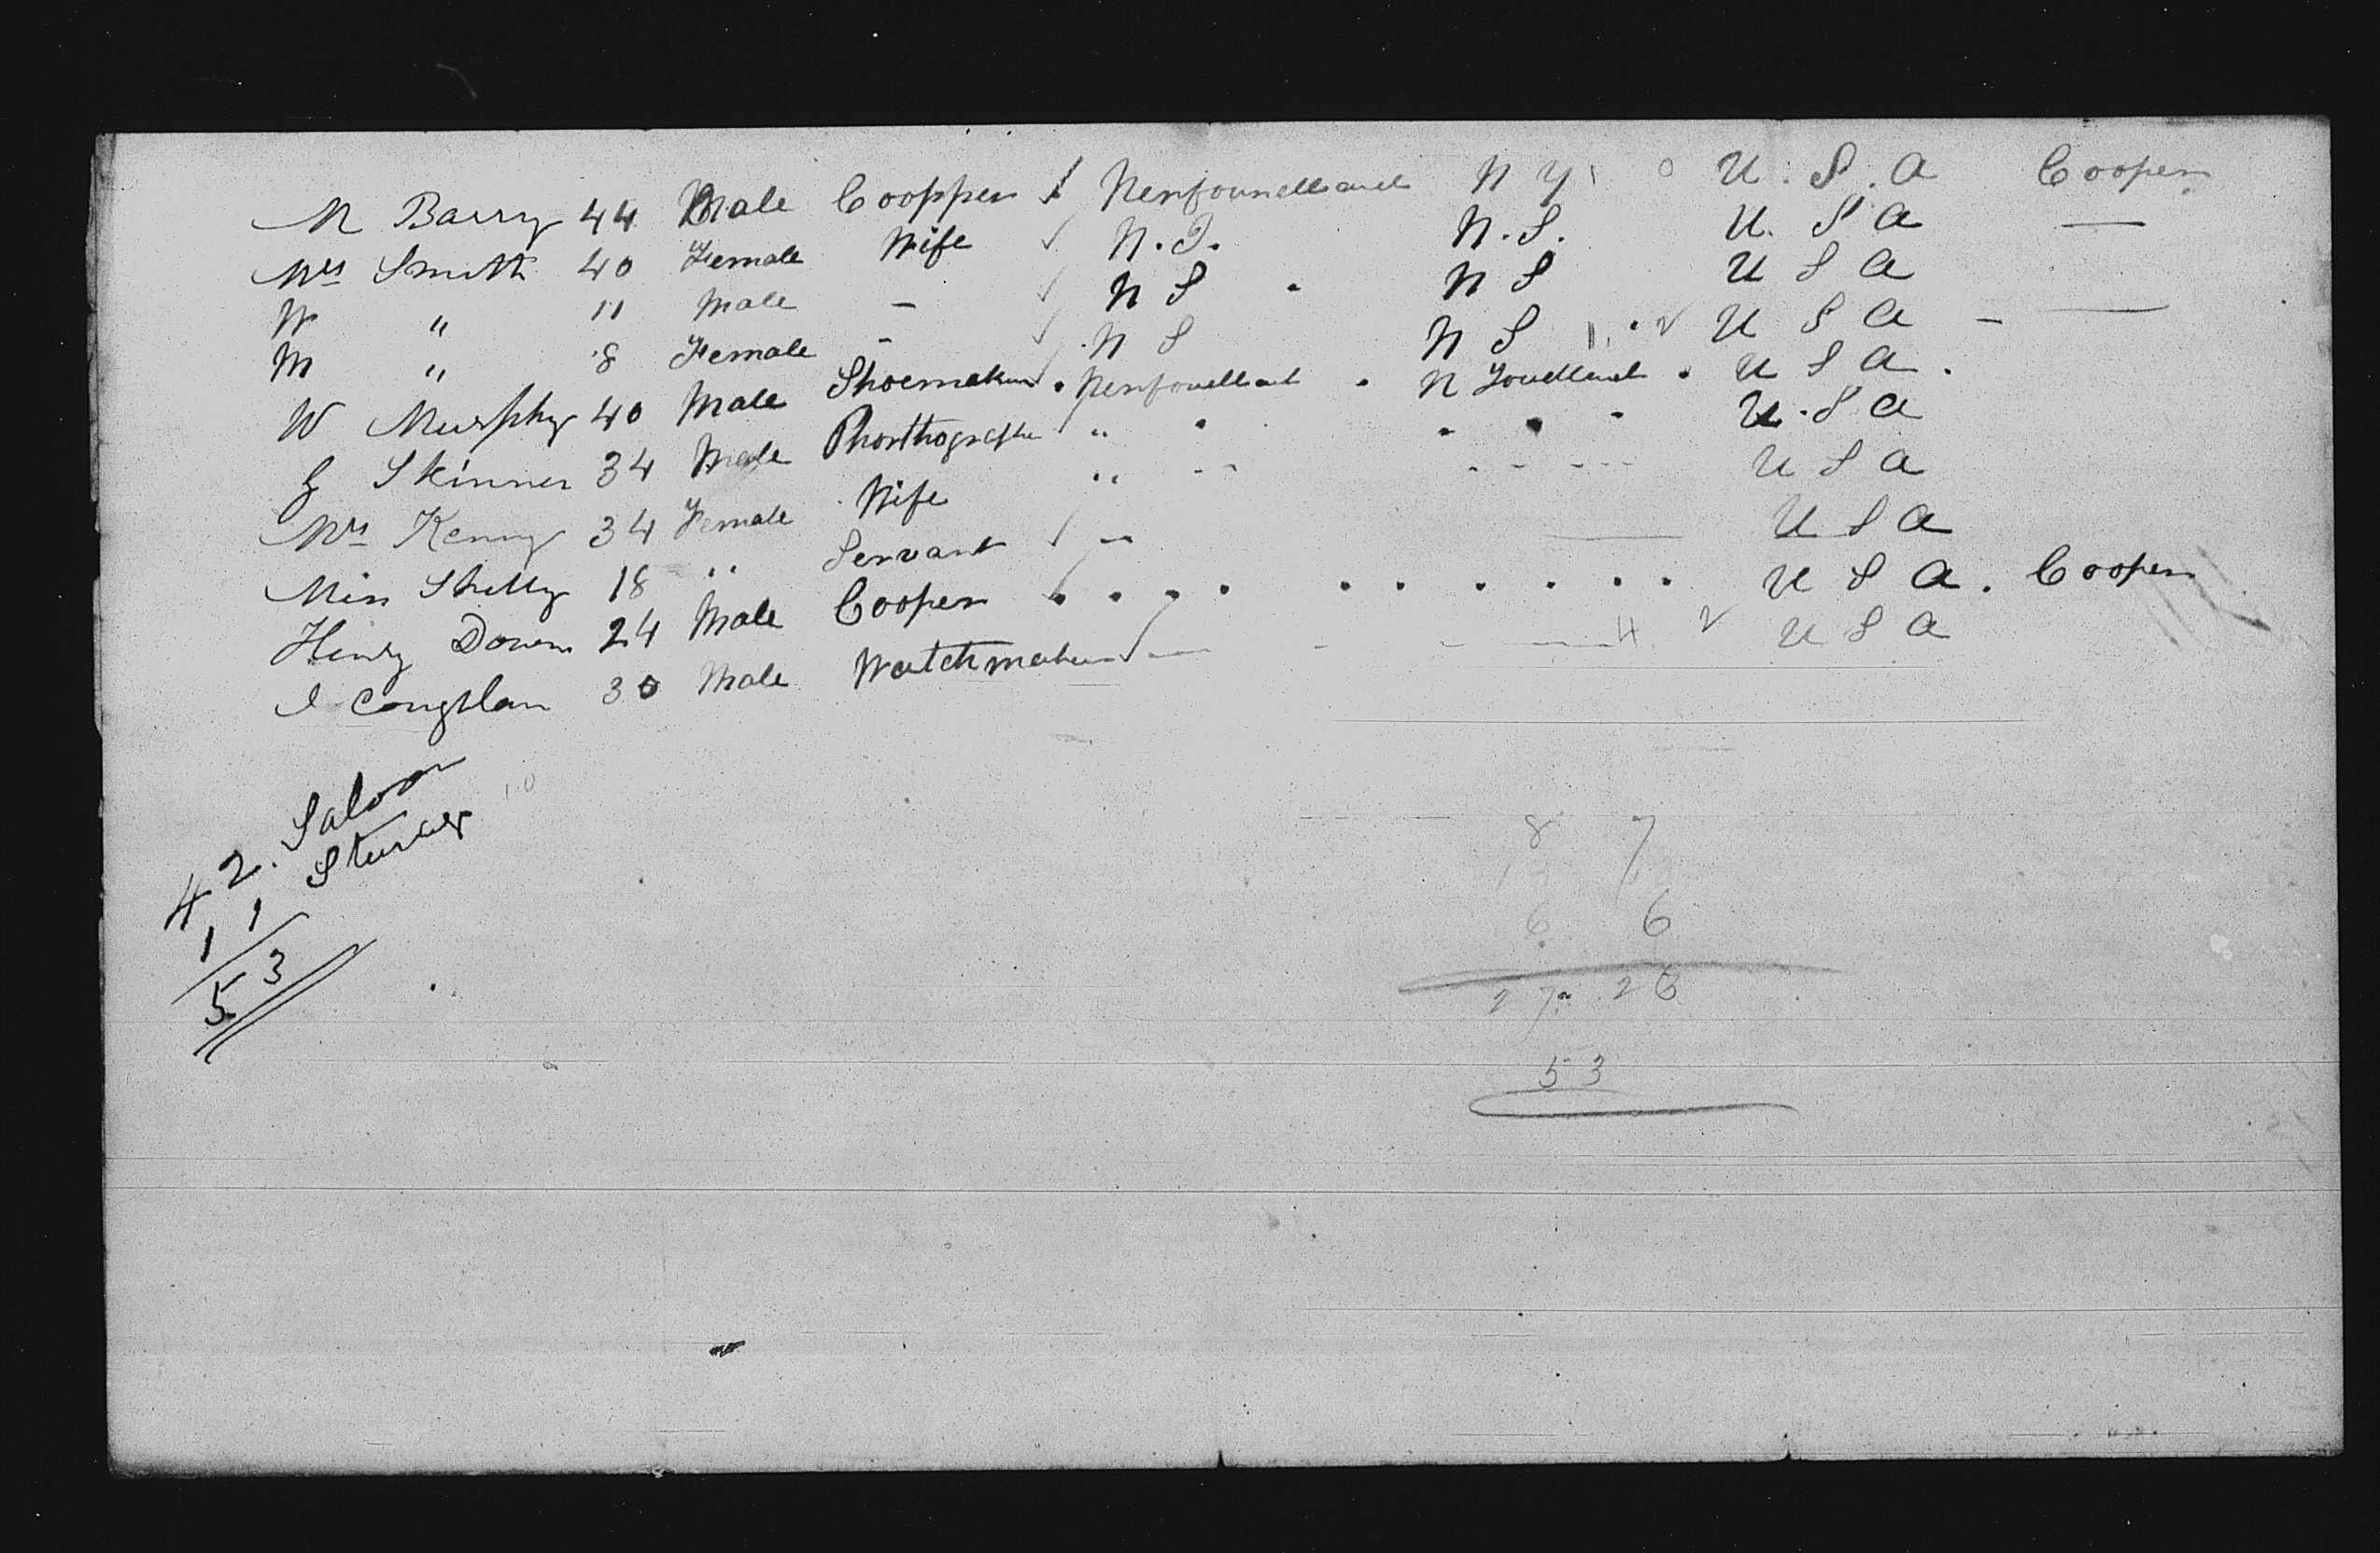 M Barry 44 Male Coopper Newfoundland N Y U. S. A Cooper
Mrs Smith 40 Female Wife N. S. N. S. U. S A —
W " 11 Male — N S N S U S A
M " 8 Female - N S N S U S A — —
W Murphy 40 Male Shoemaker Newfoudland N Foudland U S A
Skinner 34 Male " U. S A
Mrs Kenny 34 Female Wife " U S A
Miss Shelly 18 " Servant U S A
Henry Down 24 Male Cooper U S A. Cooper
Coughlan 30 Male Watchmaker U S A
42. Saloon
11
53
8 7
6 6
27 26
53